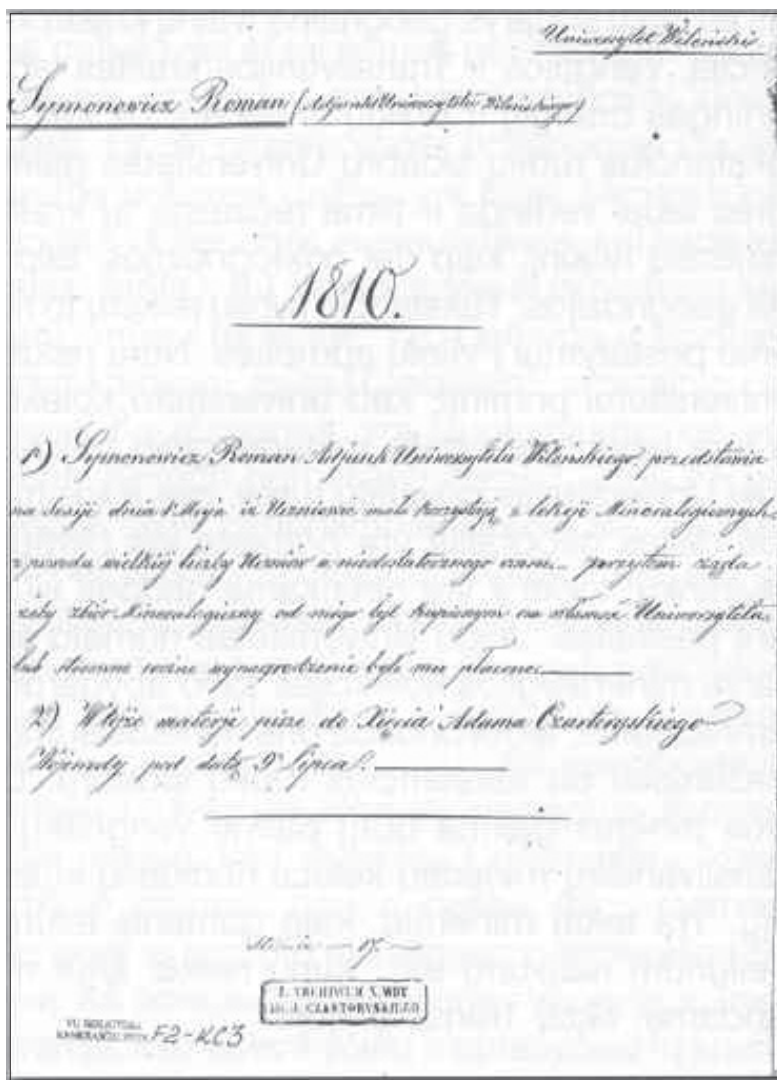 Uniwersytet Wileński
Symonowicz Roman (Adjunkt Uniwersytetu Wileńskiego)
1810.
1) Symonowicz Roman Adjunkt Uniwersytetu Wileńskiego, przedstawia
na Sesyi dnia 1 Maja iż Uczniowie mało korzystają z lekcji Mineralogicznych
z powodu wielkiéj liczby Uczniów a niedostatecznego czasu przytém żąda
żeby zbiór Mineralogiczny od niego był kupionym na własność Uniwersytetu
lub słuszne roczne wynagrodzenie było mu płacone.
2) W tejże materji pisze do Xięcia Adama Czartoryskiego
pod datą 9 Lipca.
Stronic 17.
Z ARCHIWUM X. WDY
ADAMA CZARTORYSKIEGO
VU BIBLIOTEKA
F2-KC3